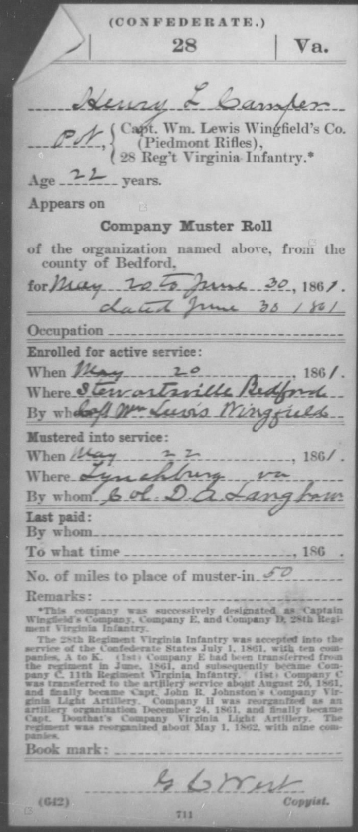 (CONFEDERATE.)
28 Va.
Henry L Camper
Pvt, Capt. Wm. Lewis Wingfield's Co.
(Piedmont Rifles),
28 Reg't Virginia Infantry.*
Age 22 years.
Appears on
Company Muster Roll
of the organization named above, from the
county of Bedford,
for May 20 to June 30, 1861.
dated June 30 1861
Occupation
Enrolled for active service:
When May 20, 1861.
Where Stewartsville Bedford
By whom Capt Wm Lewis Wingfield
Mustered into service:
When May 22, 1861.
Where Lynchburg va
By whom Col. D A Langhorn
Last paid:
By whom
To what time , 186 .
No. of miles to place of muster-in 50
Remarks:
*This company was successively designated as Captain
Wingfield's Company, Company E, and Company D, 28th Regi-
ment Virginia Infantry.
The 28th Regiment Virginia Infantry was accepted into the
service of the Confederate States July 1, 1861, with ten com-
panies, A to K. (1st) Company E had been transferred from
the regiment in June, 1861, and subsequently became Com-
pany C, 11th Regiment Virginia Infantry. (1st) Company C
was transferred to the artillery service about August 20, 1861,
and finally became Capt. John R. Johnston's Company Vir-
ginia Light Artillery. Company H was reorganized as an
artillery organization December 24, 1861, and finally became
Capt. Douthat's Company Virginia Light Artillery. The
regiment was reorganized about May 1, 1862, with nine com-
panies.
Book mark:
G C West
(642) Copyist.
711